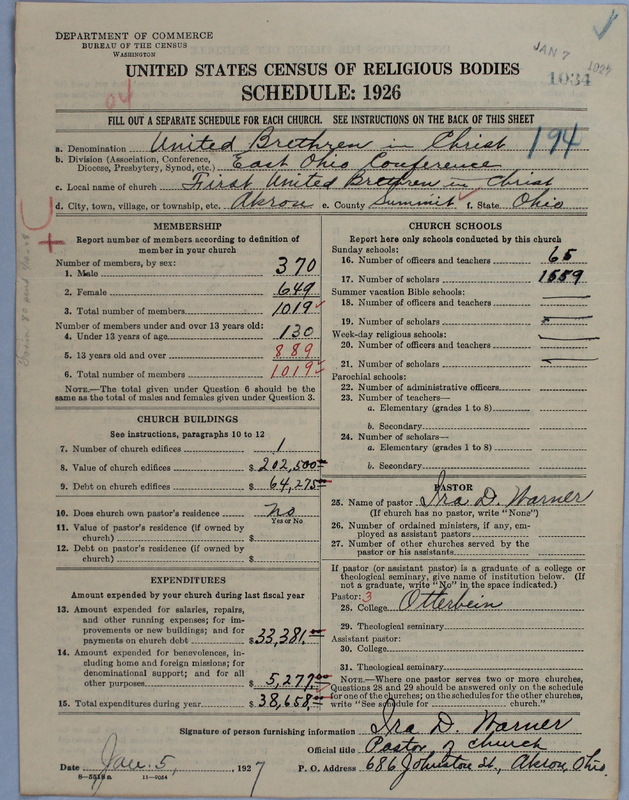 DEPARTMENT OF COMMERCE
BUREAU OF THE CENSUS
WASHINGTON
JAN 7 1927
1034
UNITED STATES CENSUS OF RELIGIOUS BODIES
SCHEDULE: 1926
04
FILL OUT A SEPARATE SCHEDULE FOR EACH CHURCH. SEE INSTRUCTIONS ON THE BACK OF THIS SHEET
194
a. Denomination United Brethren in Christ
b. Division (Association, Conference, Diocese, Presbytery, Synod, etc.) East Ohio Conference
c. Local name of church First United Brethren in Christ
d. City, town, village, or township, etc. Akron e. County Summit f. State Ohio
MEMBERSHIP
Report number of members according to definition of
member in your church
Number of members, by sex:
1. Male 370
2. Female 649
3. Total number of members 1019
Number of members under and over 13 years old:
4. Under 13 years of age 130
5. 13 years old and over 889
6. Total number of members 1019
NOTE.—The total given under Question 6 should be the
same as the total of males and females given under Question 3.
CHURCH BUILDINGS
See instructions, paragraphs 10 to 12
7. Number of church edifices 1
8. Value of church edifices $202,500
9. Debt on church edifices $64,275
10. Does church own pastor's residence No
Yes or No
11. Value of pastor's residence (if owned by
church) $
12. Debt on pastor's residence (if owned by
church) $
EXPENDITURES
Amount expended by your church during last fiscal year
13. Amount expended for salaries, repairs,
and other running expenses; for im-
provements or new buildings; and for
payments on church debt $33,381.00
14. Amount expended for benevolences, in-
cluding home and foreign missions; for
denominational support; and for all
other purposes $5,277.00
15. Total expenditures during year $38,658.00
CHURCH SCHOOLS
Report here only schools conducted by this church
Sunday schools:
16. Number of officers and teachers 65
17. Number of scholars 1559
Summer vacation Bible schools:
18. Number of officers and teachers
19. Number of scholars
Week-day religious schools:
20. Number of officers and teachers
21. Number of scholars
Parochial schools:
22. Number of administrative officers
23. Number of teachers—
a. Elementary (grades 1 to 8)
b. Secondary
24. Number of scholars—
a. Elementary (grades 1 to 8)
b. Secondary
PASTOR
25. Name of pastor Ira D. Warner
(If church has no pastor, write "None")
26. Number of ordained ministers, if any, em-
ployed as assistant pastors
27. Number of other churches served by the
pastor or his assistants
If pastor (or assistant pastor) is a graduate of a college or
theological seminary, give name of institution below. (If
not a graduate, write "No" in the space indicated.)
Pastor: 3
28. College Otterbein
29. Theological seminary
Assistant pastor:
30. College
31. Theological seminary
NOTE.—Where one pastor serves two or more churches,
Questions 28 and 29 should be answered only on the schedule
for one of the churches; on the schedules for the other churches,
write "See schedule for church."
Signature of person furnishing information Ira D. Warner
Official title Pastor of church
Date Jan. 5, 1927 P. O. Address 686 Johnston St., Akron, Ohio.
8—5518a 11—9054